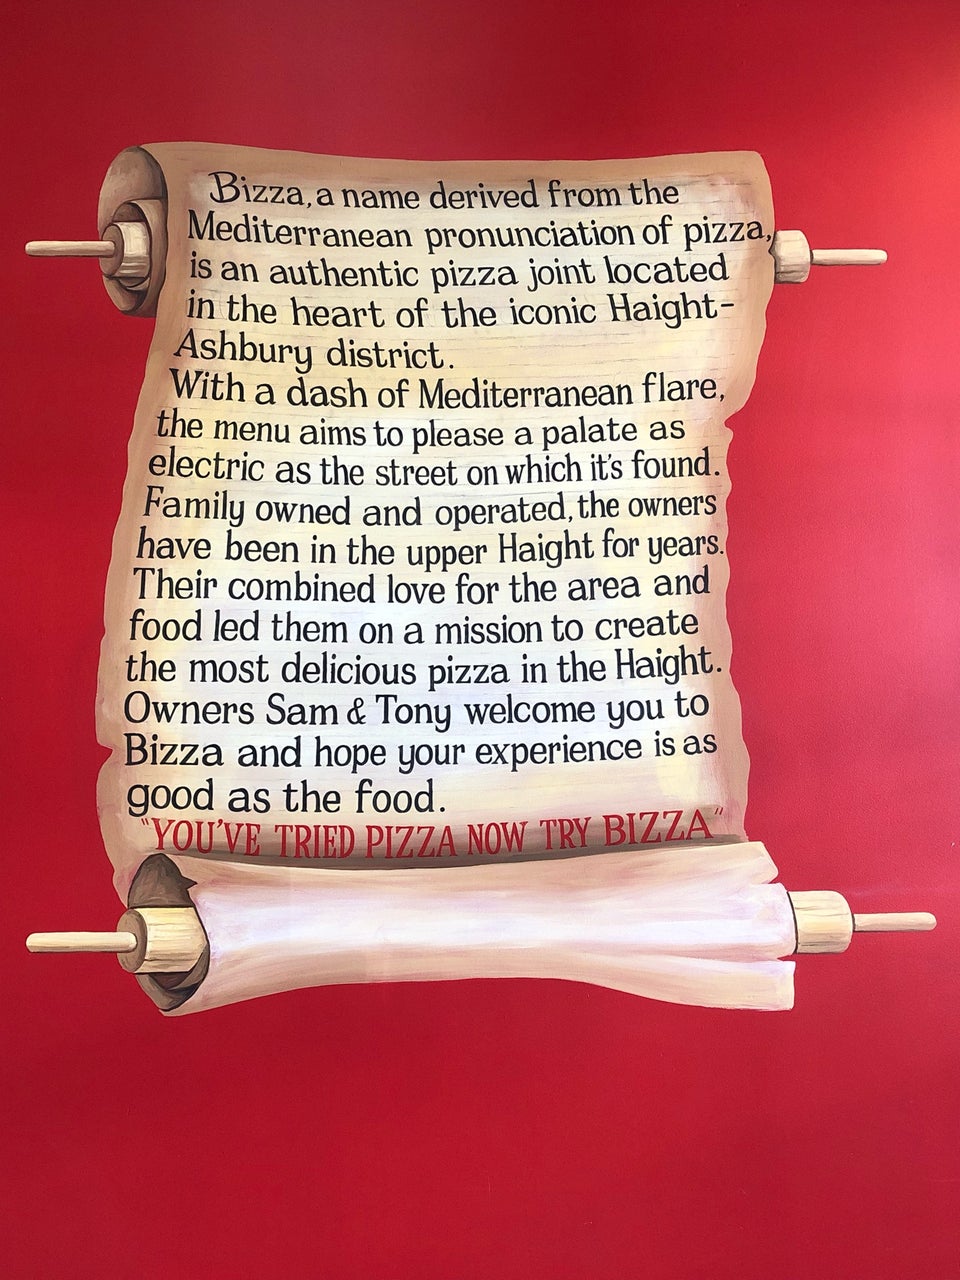 Bizza, a name derived from the
Mediterranean pronunciation of pizza,
is an authentic pizza joint located
in the heart of the iconic Haight-
Ashbury district.
With a dash of Mediterranean flare,
the menu aims to please a palate as
electric as the street on which it's found.
Family owned and operated, the owners
have been in the upper Haight for years.
Their combined love for the area and
food led them on a mission to create
the most delicious pizza in the Haight.
Owners Sam & Tony welcome you to
Bizza and hope your experience is as
good as the food.
"YOU'VE TRIED PIZZA NOW TRY BIZZA"